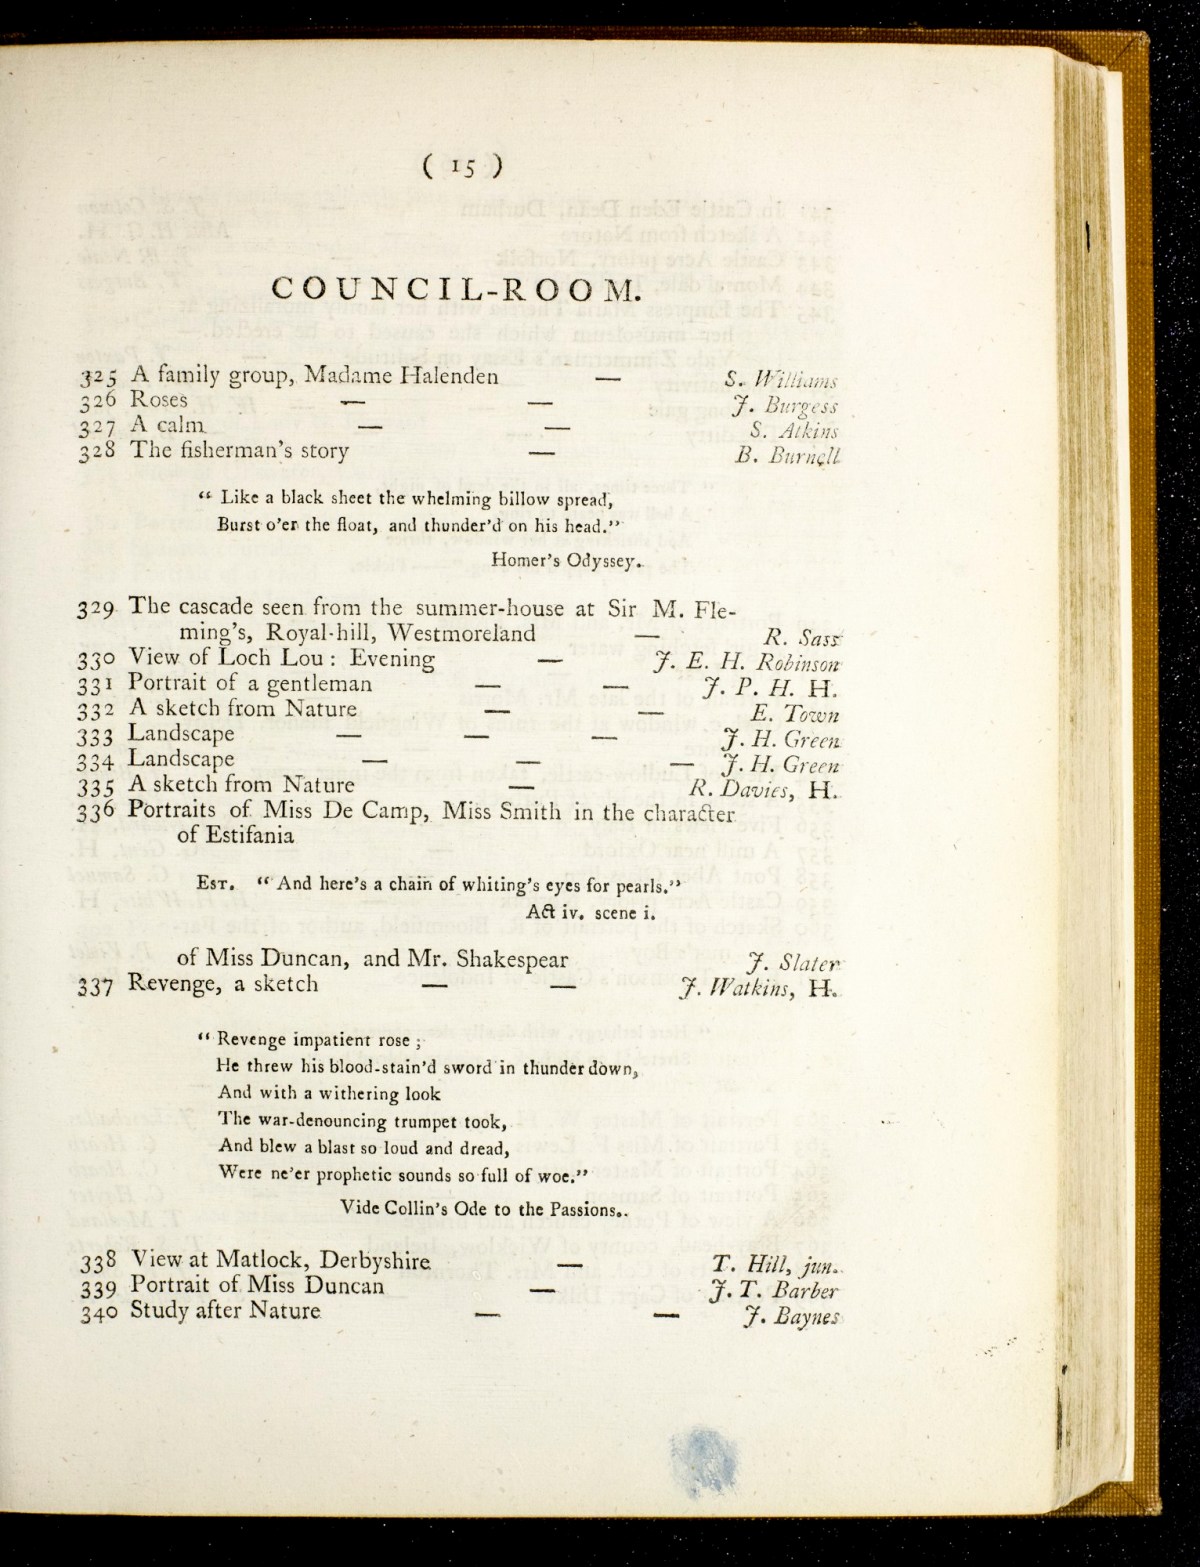 ( 15 )
COUNCIL-ROOM.
325 A family group, Madame Halenden — S. Williams
326 Roses — — J. Burgess
327 A calm — — S. Atkins
328 The fisherman's story — B. Burnell
“ Like a black sheet the whelming billow spread,
Burst o'er the float, and thunder'd on his head.”
Homer's Odyssey.
329 The cascade seen from the summer-house at Sir M. Fle-
ming's, Royal-hill, Westmoreland — R. Sass
330 View of Loch Lou : Evening — J. E. H. Robinson
331 Portrait of a gentleman — — J. P. H. H.
332 A sketch from Nature — — E. Town
333 Landscape — — — J. H. Green
334 Landscape — — — J. H. Green
335 A sketch from Nature — R. Davies, H.
336 Portraits of Miss De Camp, Miss Smith in the character
of Estifania
EST. “ And here's a chain of whiting's eyes for pearls.”
Act iv. scene i.
of Miss Duncan, and Mr. Shakespear J. Slater
337 Revenge, a sketch — — J. Watkins, H.
“ Revenge impatient rose ;
He threw his blood-stain'd sword in thunder down,
And with a withering look
The war-denouncing trumpet took,
And blew a blast so loud and dread,
Were ne'er prophetic sounds so full of woe.”
Vide Collin's Ode to the Passions.
338 View at Matlock, Derbyshire — T. Hill, jun.
339 Portrait of Miss Duncan — J. T. Barber
340 Study after Nature — — J. Baynes